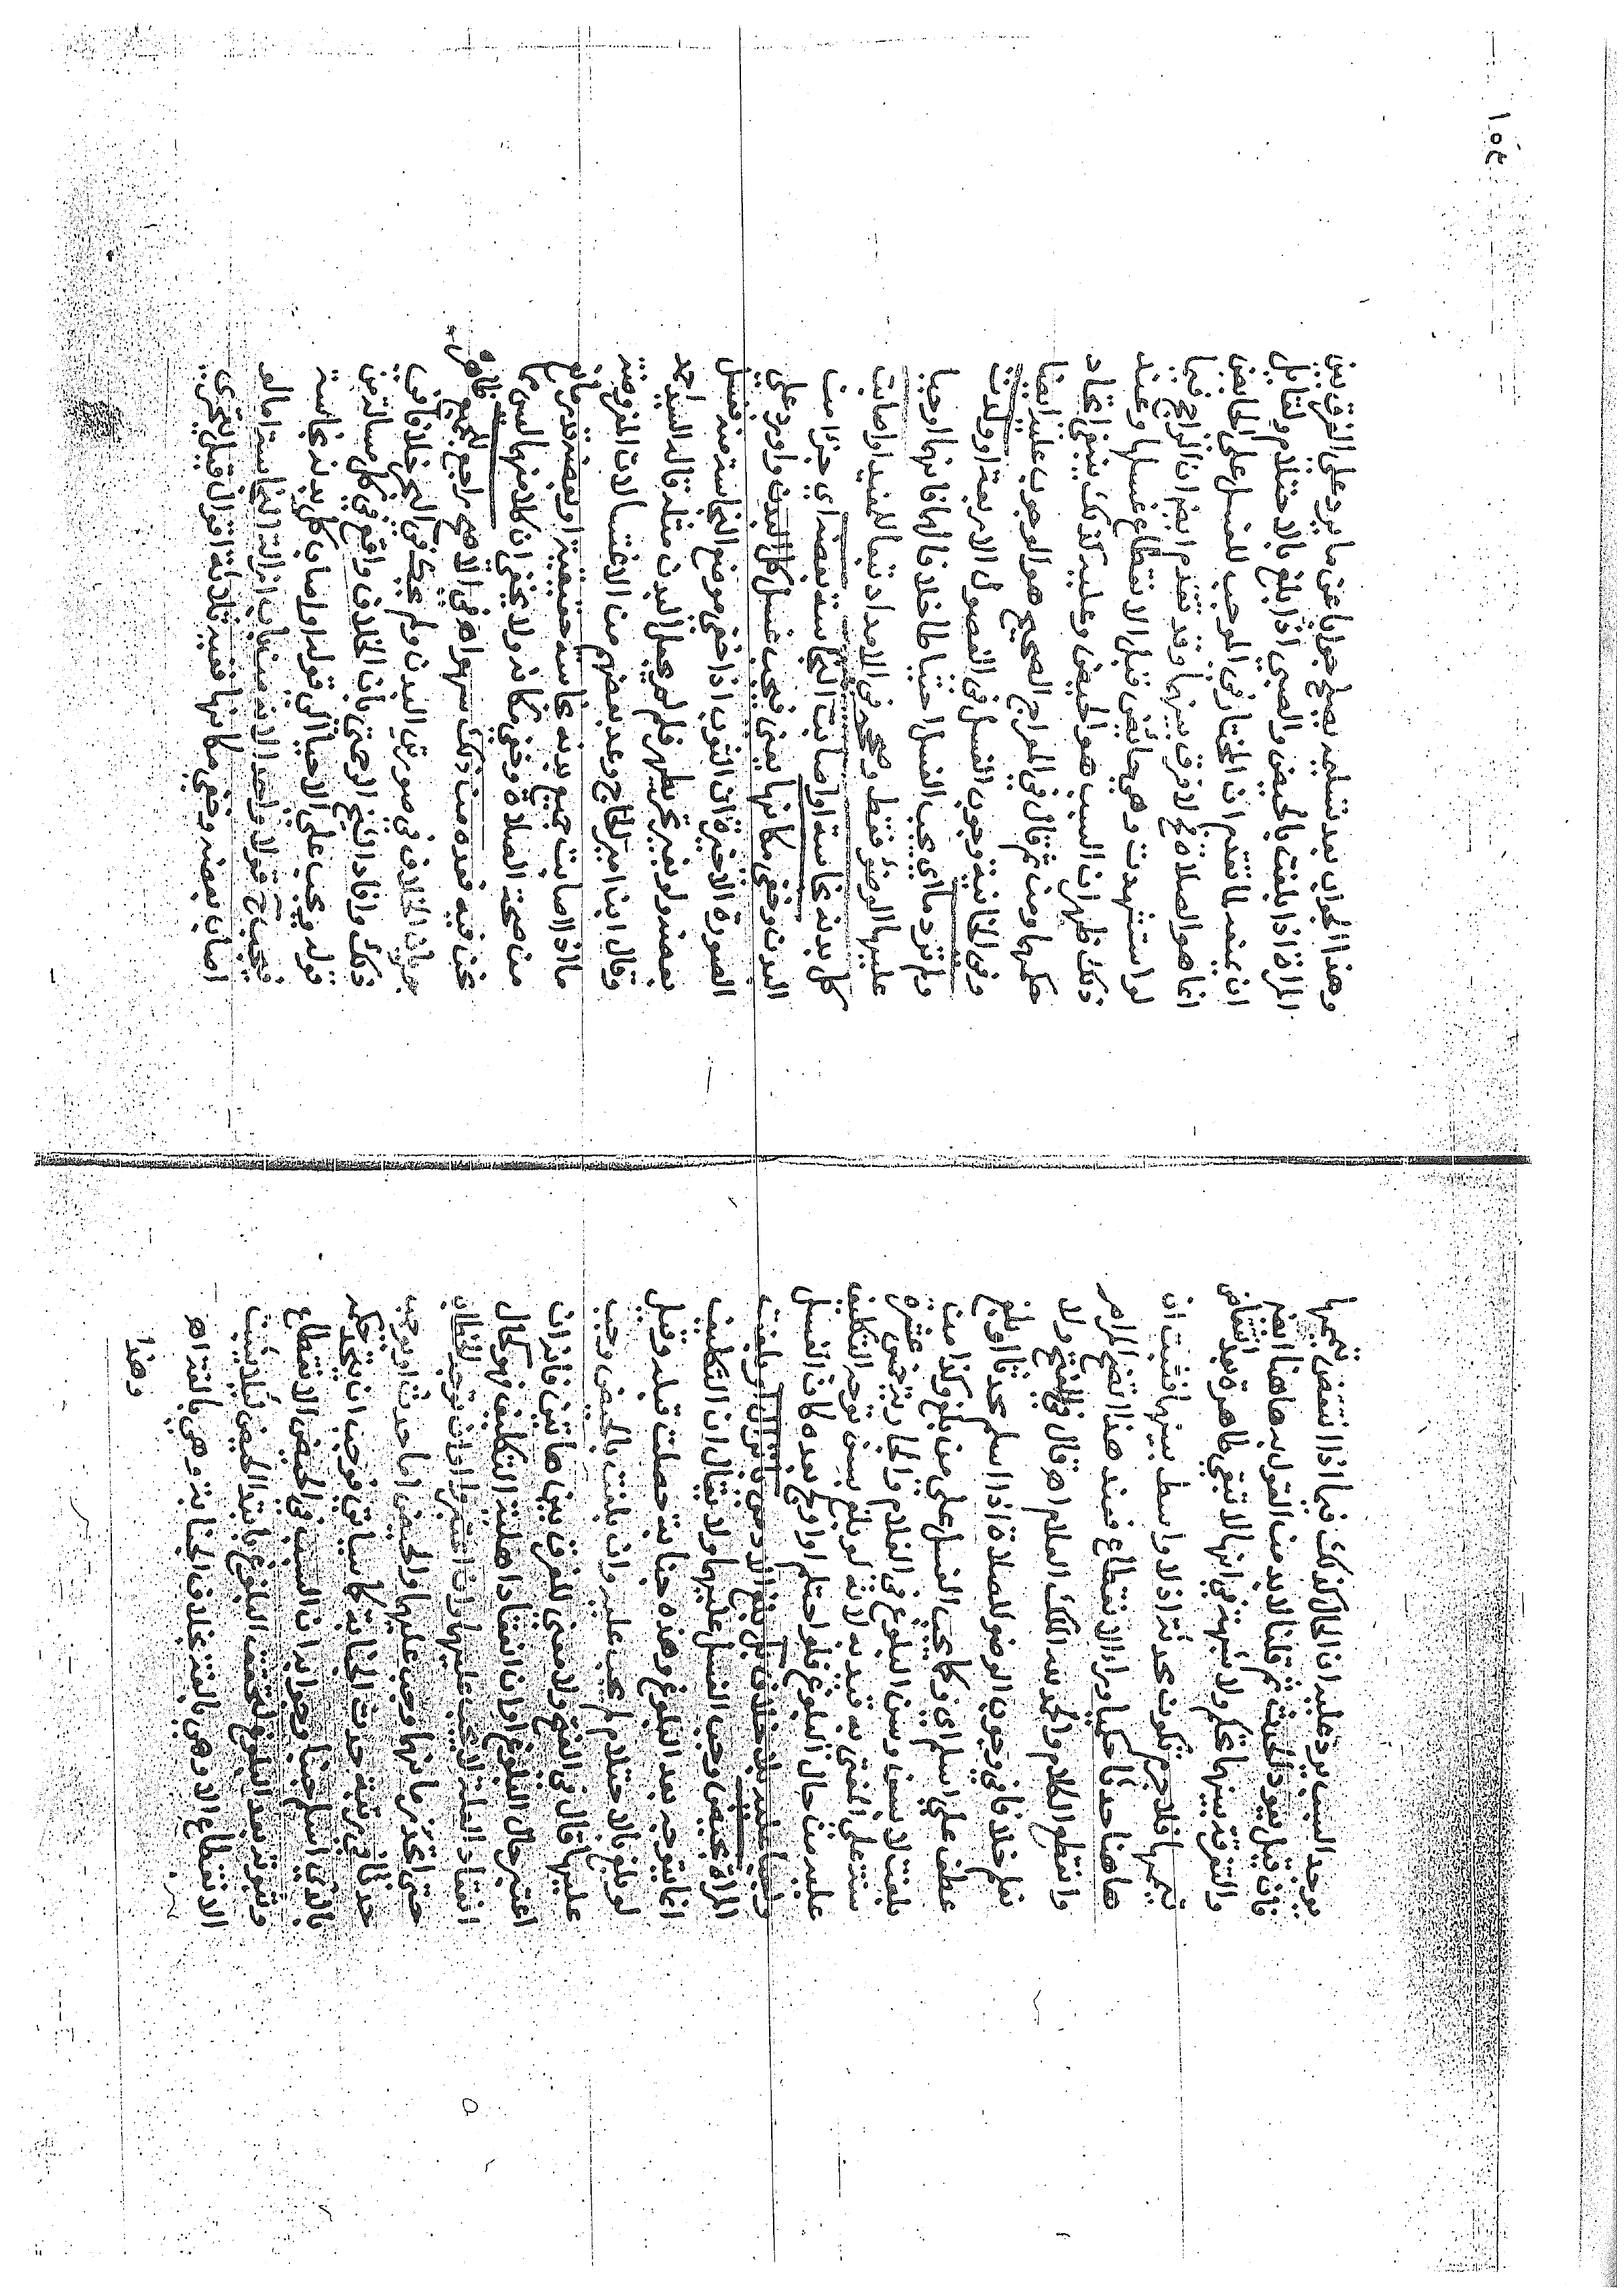 يوجد السبب يرد عليه ان الحال كذلك فيما اذا انتقض تيممها
فان قيل يعود الحدث ثم قلنا لابد من القول به هاهنا ايضم
والتفرقة بينهما تحكم ولا شبهة في انها لا تبقى طاهرة بعد انتقاض
تيممها فلا جرم تكون محدثة اذ لا واسطة بينهما فثبت ان
هاهنا حدثا حكميا وراء الانقطاع فعند هذا اتضح المرام
وانقطع الكلام والحمد لله الملك العلام اه قال في الفتح ولا
نعلم خلافا في وجوب الوضو للصلاة اذا اسلم محدثا او بلغ
عطف على اسلم اي وكما يجب الغسل على من بلغ وكذا من
بلغت لا بسن وسن البلوغ في الغلام والجارية خمس عشرة
سنة على المفتى به قيد به لانه لو بلغ بسن توجه التكليف
عليه من حال البلوغ فلو احتلم او اولج بعده كان الغسل
واجبا عليه بلا خلاف في الاصح او بلغت
المراة بحيض وجب الغسل عليها ولا يقال ان التكليف
انما يتوجه بعد البلوغ وهذه جنابة حصلت قبله وقيل
لو بلغ بالاحتلام لم يجب عليه وان بلغت بالحيض وجب
عليها قال في الفتح ولا معنى للفرق بين هاتين فانه ان
اعتبر حال البلوغ اوان انعقاد اهلية التكليف فهو كحال
انعقاد العلة لا يجب عليهما وان اعتبر اوان توجه الخطاب
حتى اتحد زمانهما وجب عليهما والحيض اما حدث او يوجب
حدثا في رتبة حدث الجنابة كما سياتي فوجب ان يتحد حكمه
بالذي اسلم جنبا وجوابه ان السبب في الحيض الانقطاع
وثبوته بعد البلوغ لتحقق البلوغ بابتداء الحيض فلا يثبت
الانقطاع الا وهي بالغة بخلاف الجنابة وهي بالغة اه
وهذا
١٥٤
وهذا الجواب بعد تسليمه يصلح جوابا عن ما يورد على الفرق بين
المراة اذا بلغت بالحيض والصبي اذا بلغ بالاحتلام ولقائل
ان يمنعه لما تقدم ان المختار في الموجب للغسل على الحايض
انما هو الصلاة فلا فرق بينهما وقد تقدم ايضم ان الراجح فيما
لو استشهدت وهي حائض قبل الانقطاع غسلها وعند
ذلك ظهر ان السبب هو الحيض وعليه كذلك ينبغي اتحاد
حكمهما ومن ثم قال في المعراج الصحيح هو الوجوب عليه ايضا
وفي الخانية وجوب الغسل في الفصول الاربعة او ولدت
ولم تر دما اي يجب الغسل احتياطا خلافا لهما فانهما اوجبا
عليها الوضو فقط وصححه في الامداد تبعا للمفيد او اصابت
كل بدنه نجاسة او اصابت النجاسة بعضه اي جزا من
البدن وخفي مكانها يعني فيجب غسل كل البدن واورد على
الصورة الاخيرة ان الثوب اذا خفي موضع النجاسة منه فغسل
بعضه ولو بغير تحر يطهر فلم لم يجعل البدن مثله قاله السيد احمد
وقال ابن امير الحاج وعد بعضهم من الاغتسالات المفروضة
ما اذا اصابت جميع بدنه نجاسة حقيقية او بعضه قدر مانع
من صحة الصلاة وخفي مكانه ولا يخفى ان كلا منهما ليس مما
نحن فيه فعده من ذلك سهو اه في الاصح راجع للجميع ظاهره
جريان الخلاف في صورتي البدن ولم يحك في البحر خلافا في
ذلك وافاد الشيخ الرحمتي بان الخلاف واقع في كل مسالة من
قوله ويجب على الاحيا الى قوله او اصاب كل بدنه نجاسة
فيجب ح قولا واحدا لانه من باب ازالة النجاسة اما لو
اصاب بعضه وخفي مكانها ففيه ثلاثة اقوال قيل يتحرى